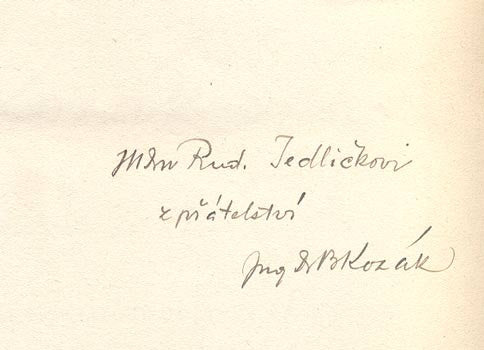 Rud. Jedličkovi
z přátelství
Ing Dr B Kozák